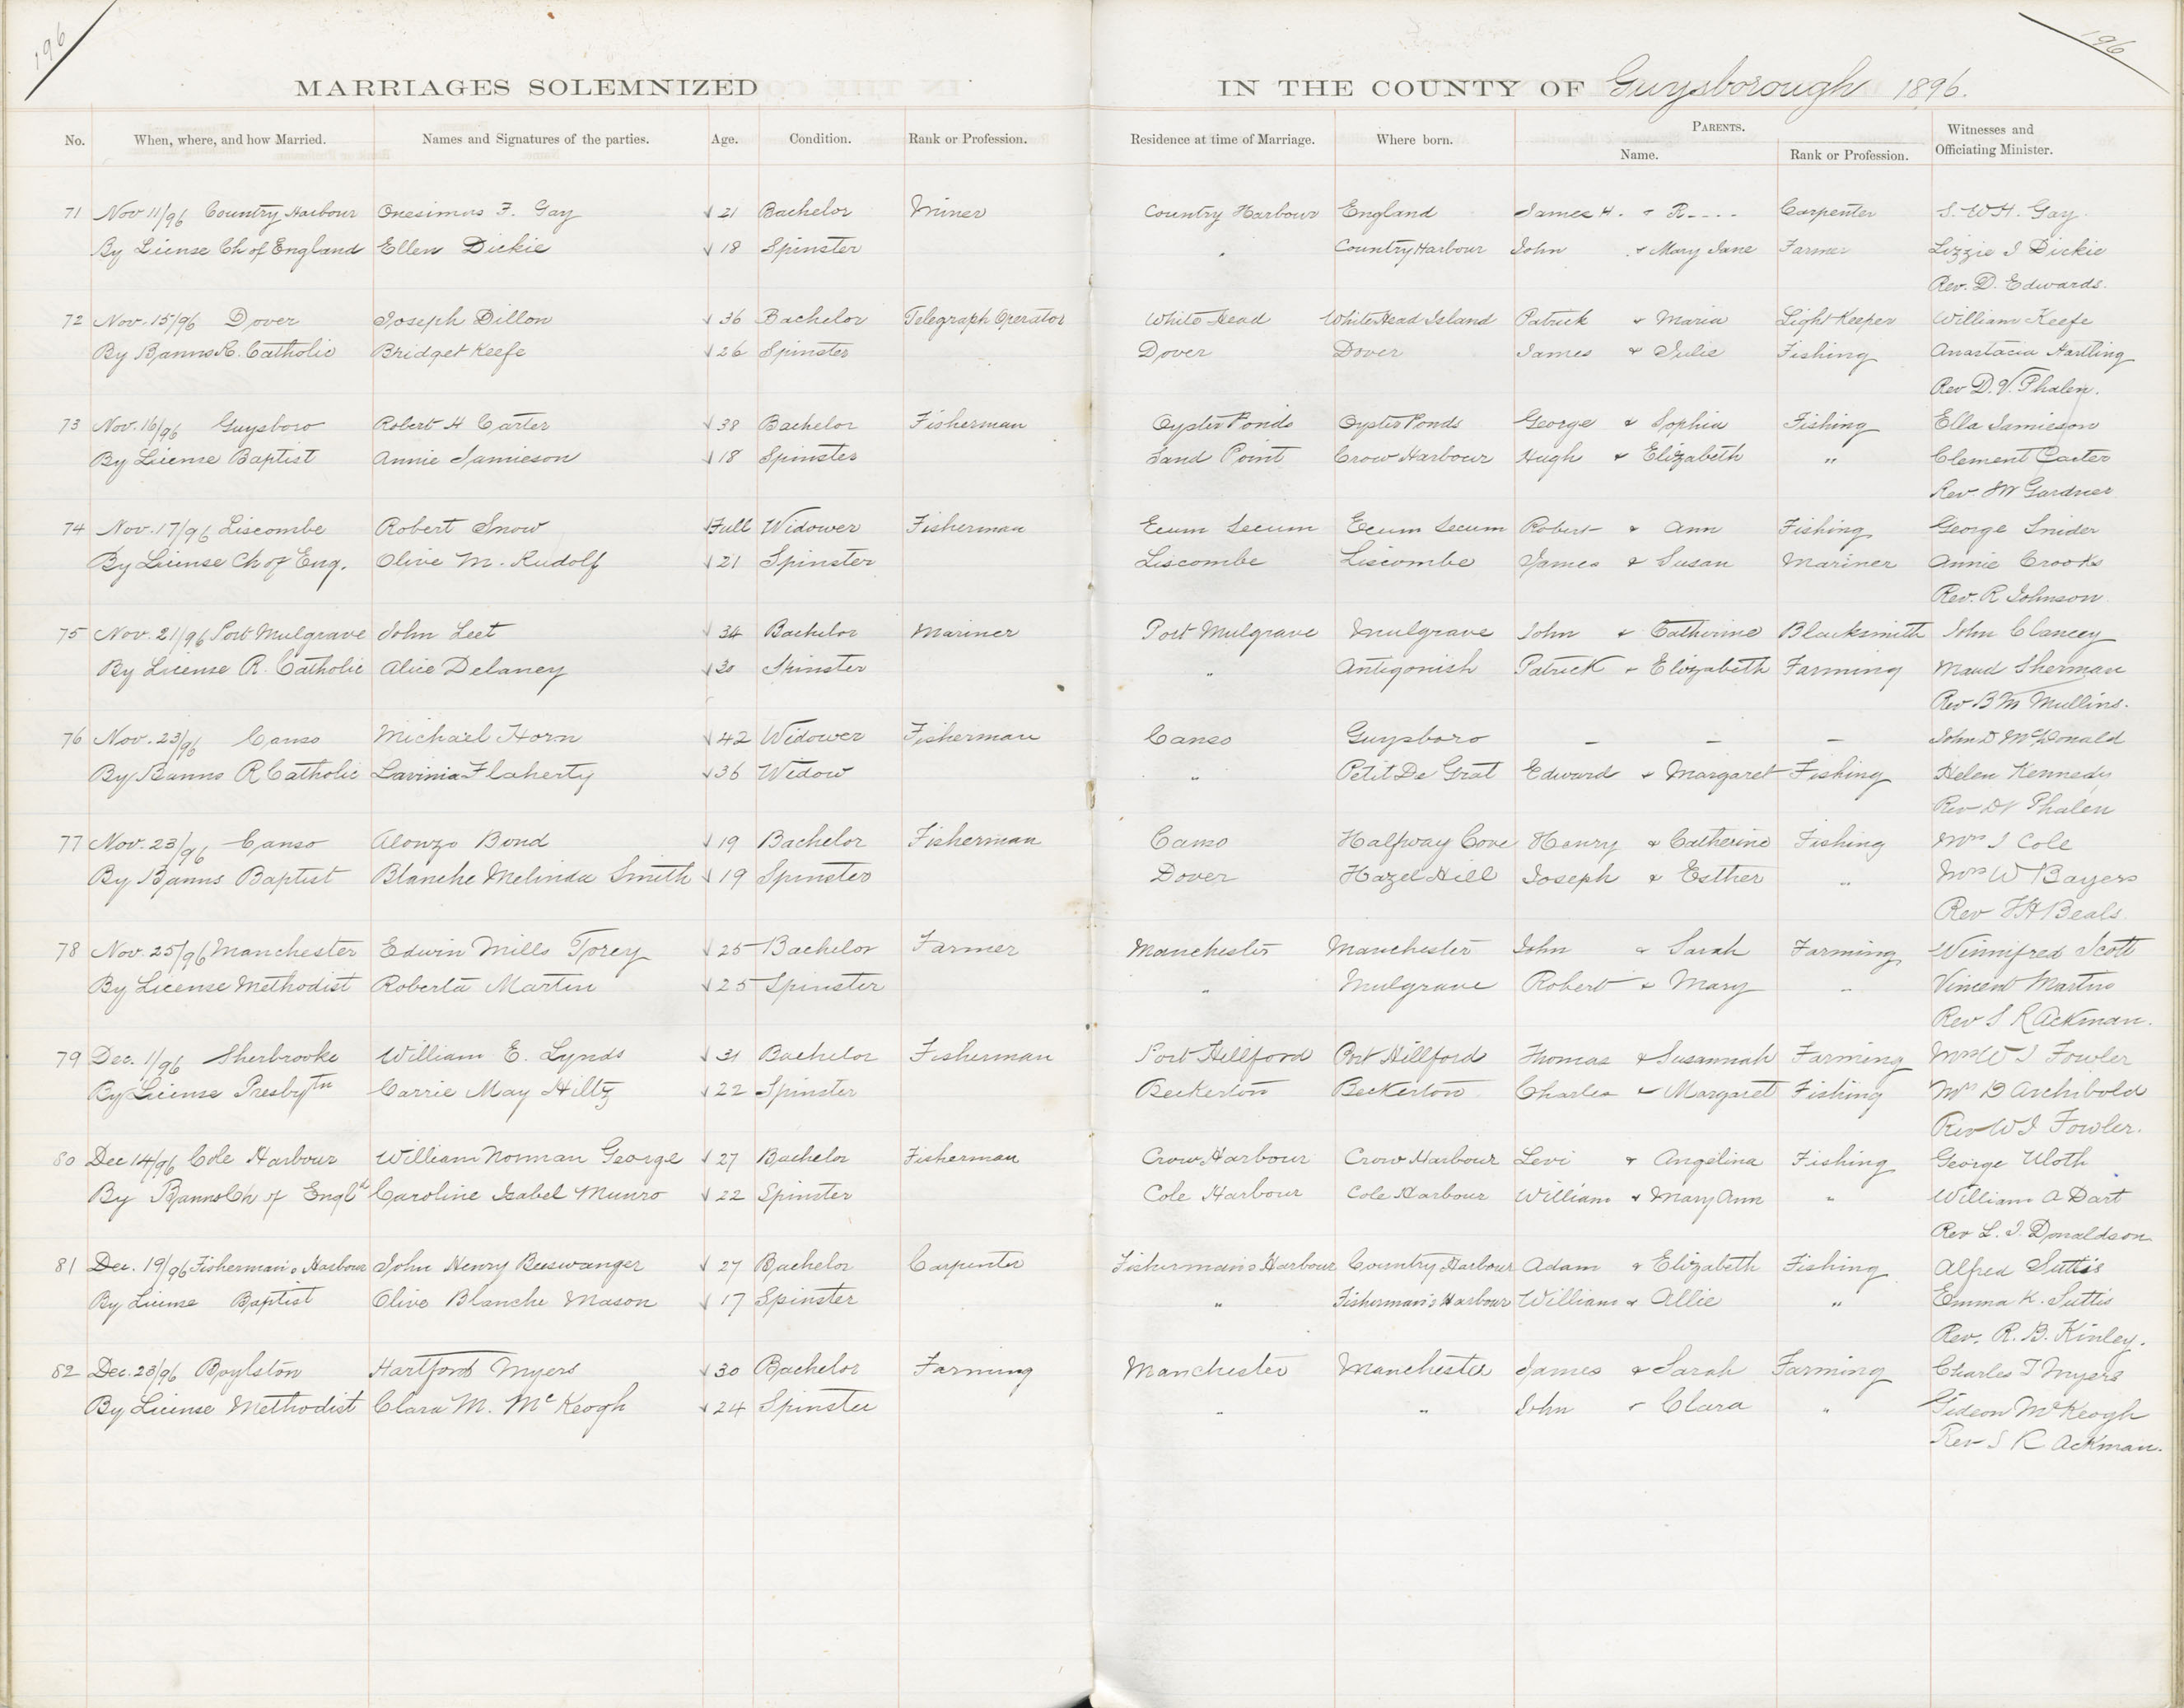 196
196
MARRIAGES SOLEMNIZED IN THE COUNTY OF Guysborough 1896.
No. When, where, and how Married. Names and Signatures of the parties. Age. Condition. Rank or Profession. Residence at time of Marriage. Where born. PARENTS. Name. Rank or Profession. Witnesses and Officiating Minister.
71 Nov 11/96 Country Harbour Onesimus F. Gay √ 21 Bachelor Miner Country Harbour England James H. & R---- Carpenter S. W. H. Gay.
By License Ch of England Ellen Dickie √ 18 Spinster " Country Harbour John & Mary Jane Farmer Lizzie J Dickie
Rev. D. Edwards.
72 Nov. 15/96 Dover Joseph Dillon √ 36 Bachelor Telegraph Operator White Head White Head Island Patrick & Maria Light Keeper William Keefe
By Banns R. Catholic Bridget Keefe √ 26 Spinster Dover Dover James & Julie Fishing Anastacia Hartling
Rev D. V. Phalen.
73 Nov. 16/96 Guysboro Robert H Carter √ 38 Bachelor Fisherman Oyster Ponds Oyster Ponds George & Sophia Fishing Ella Jamieson
By License Baptist Annie Jamieson √ 18 Spinster Sand Point Crow Harbour Hugh & Elizabeth " Clement Carter
Rev JW Gardner
74 Nov. 17/96 Liscombe Robert Snow √ Full Widower Fisherman Ecum Secum Ecum Secum Robert & Ann Fishing George Snider
By License Ch of Eng. Olive M. Rudolf √ 21 Spinster Liscombe Liscombe James & Susan Mariner Annie Crooks
Rev. R Johnson
75 Nov. 21/96 Port Mulgrave John Leet √ 34 Bachelor Mariner Port Mulgrave Mulgrave John & Catherine Blacksmith John Clancey
By License R. Catholic Alice Delaney √ 30 Spinster " Antigonish Patrick & Elizabeth Farming Maud Sherman
Rev B Mc Mullins.
76 Nov. 23/96 Canso Michael Horn √ 42 Widower Fisherman Canso Guysboro – – – John D McDonald
By Banns R Catholic Lavinia Flaherty √ 36 Widow " Petit De Grat Edward & Margaret Fishing Helen Kennedy
Rev DV Phalen
77 Nov. 23/96 Canso Alonzo Bond √ 19 Bachelor Fisherman Canso Halfway Cove Henry & Catherine Fishing Mrs J Cole
By Banns Baptist Blanche Melinda Smith √ 19 Spinster Dover Hazel Hill Joseph & Esther " Mrs W Bayers
Rev FH Beals
78 Nov. 25/96 Manchester Edwin Mills Torey √ 25 Bachelor Farmer Manchester Manchester John & Sarah Farming Winnifred Scott
By License Methodist Roberta Martin √ 25 Spinster " Mulgrave Robert & Mary " Vincent Martin
Rev S R Ackman.
79 Dec. 1/96 Sherbrooke William E. Lynds √ 31 Bachelor Fisherman Port Hillford Port Hillford Thomas & Susannah Farming Mrs W J Fowler
By License Presbytn Carrie May Hiltz √ 22 Spinster Beckerton Beckerton Charles & Margaret Fishing Mrs D Archibold
Rev W J Fowler.
80 Dec 14/96 Cole Harbour William Norman George √ 27 Bachelor Fisherman Crow Harbour Crow Harbour Levi & Angelina Fishing George Uloth
By Banns Ch of Engld Caroline Isabel Munro √ 22 Spinster Cole Harbour Cole Harbour William & Mary Ann " William A Dart
Rev L. J. Donaldson
81 Dec. 19/96 Fisherman's Harbour John Henry Beiswanger √ 27 Bachelor Carpenter Fisherman's Harbour Country Harbour Adam & Elizabeth Fishing Alfred Suttis
By License Baptist Olive Blanche Mason √ 17 Spinster " Fisherman's Harbour William & Allie " Emma K. Suttis
Rev. R. B. Kinley.
82 Dec. 23/96 Boylston Hartford Myers √ 30 Bachelor Farming Manchester Manchester James & Sarah Farming Charles T Myers
By License Methodist Clara M. McKeogh √ 24 Spinster " " John & Clara " Gideon McKeogh
Rev S R Ackman.